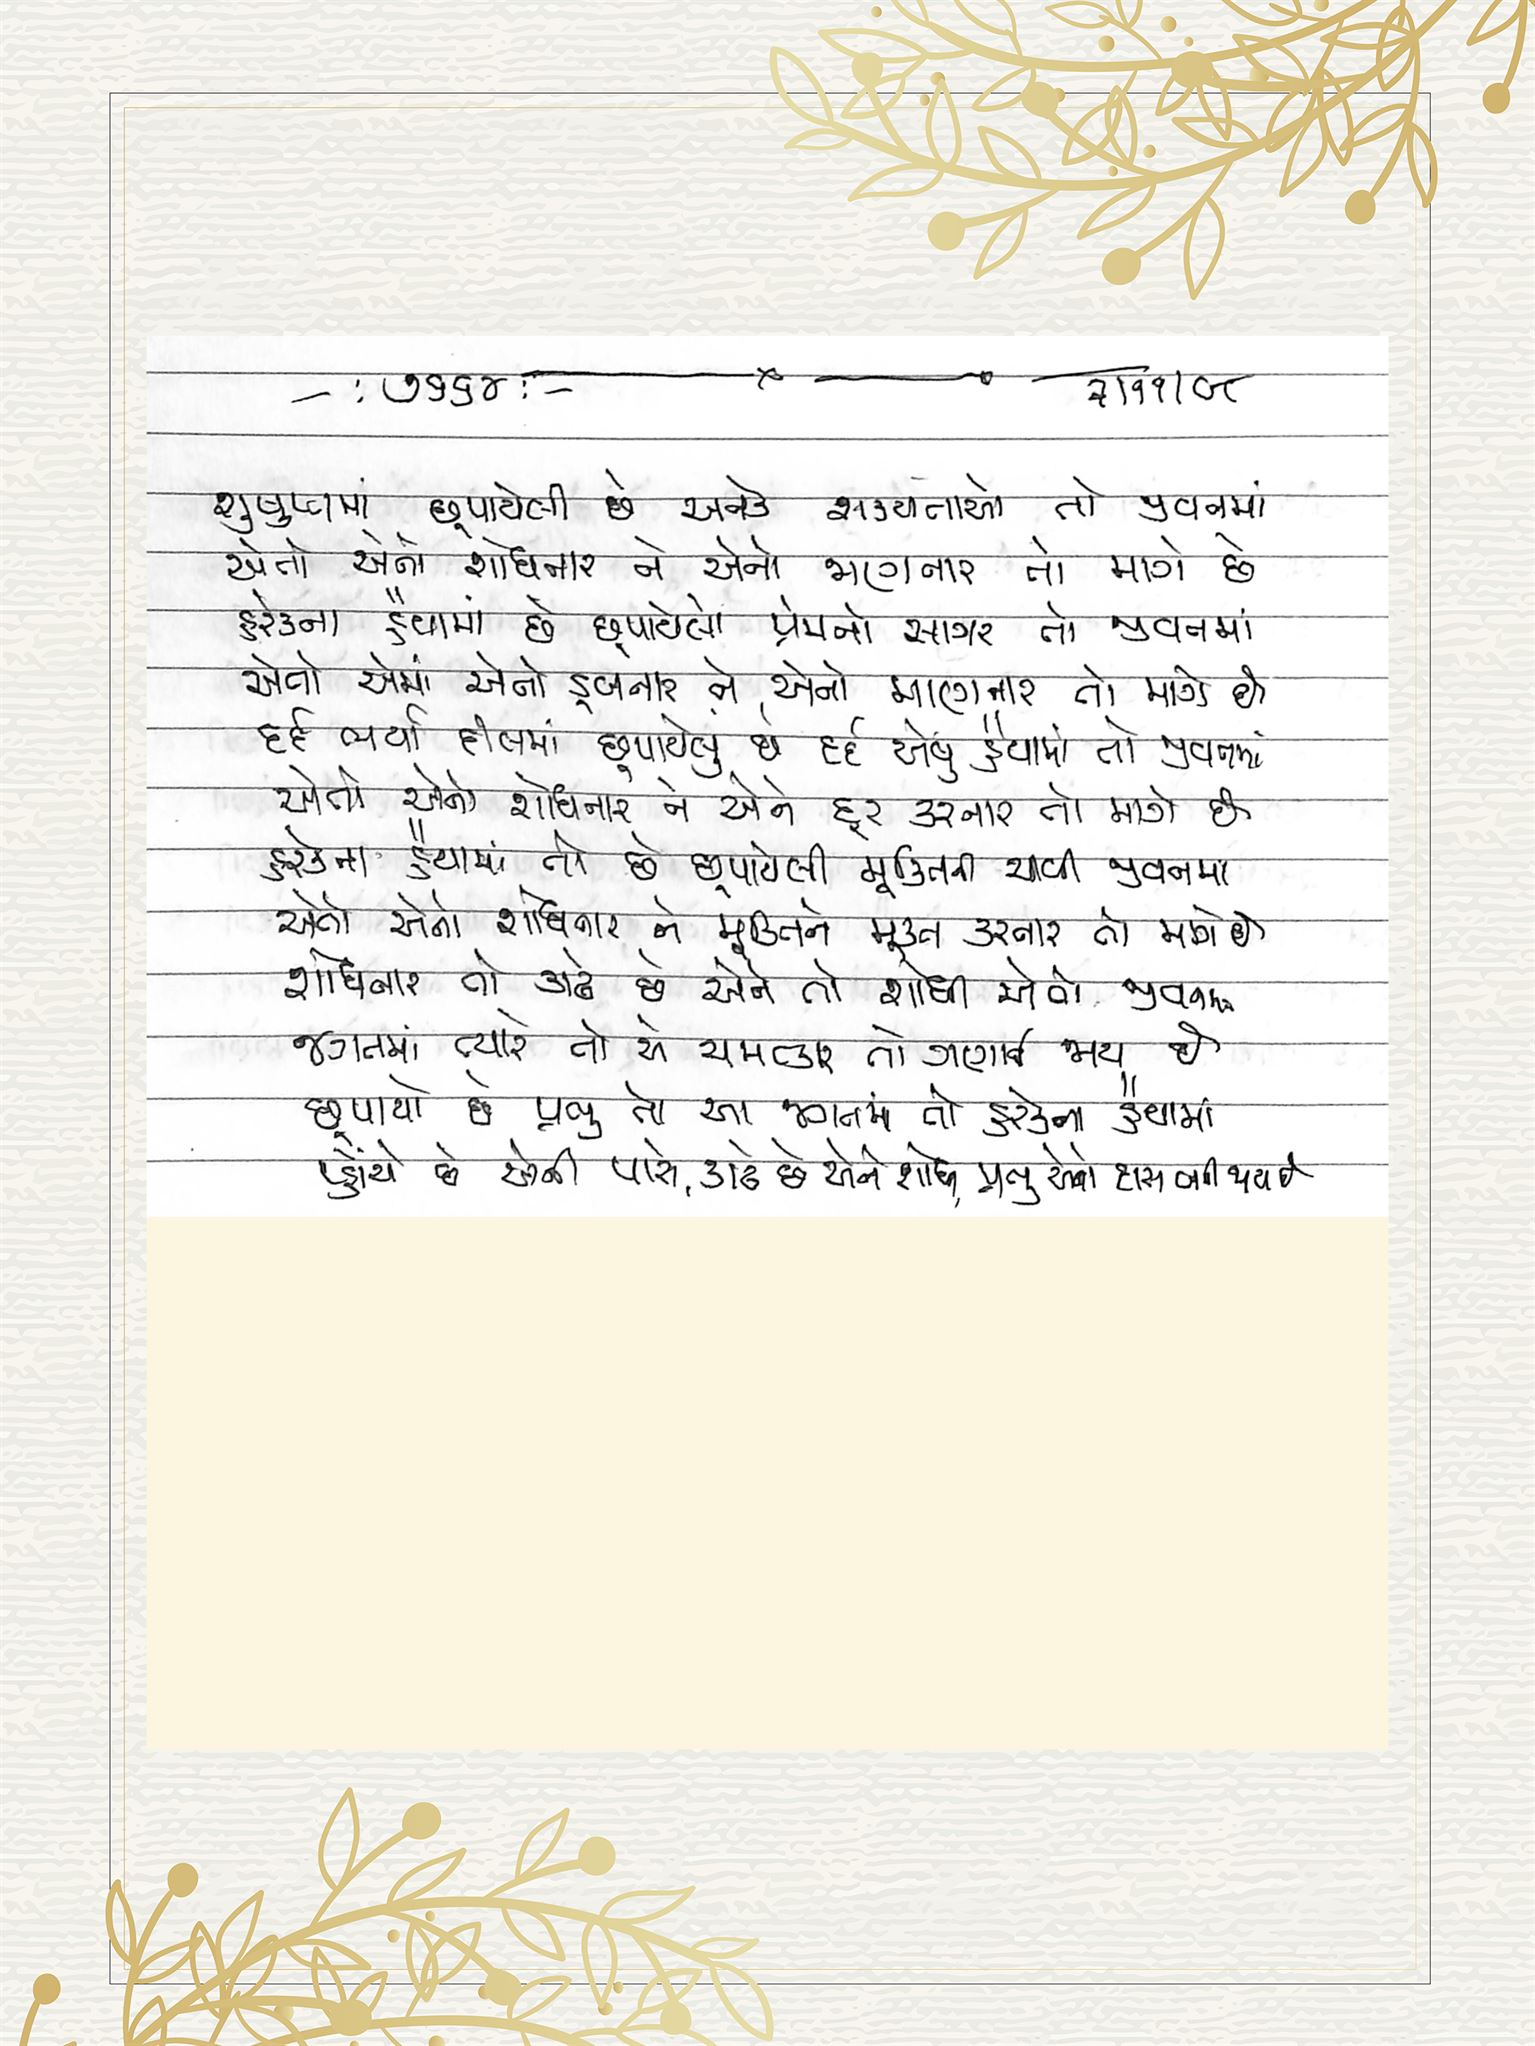 -: ૭૬૬૪ :- ૨/૧૧/૯૮
શુષુપ્તમાં છૂપાયેલી છે અનેક શક્યતાઓ તો જીવનમાં
એતો એનો શોધનાર ને એનો જાણનાર તો માગે છે
હરેકના હૈયામાં છે છૂપાયેલો પ્રેમનો સાગર તો જીવનમાં
એતો એમાં એનો ડૂબનાર ને એનો માણનાર તો માગે છે
દર્દ ભર્યા દીલમાં છૂપાયેલું છે દર્દ એવું હૈયામાં તો જીવનમાં
એતો એનો શોધનાર ને એને દૂર કરનાર તો માગે છે
હરેકના હૈયામાં તો છે છૂપાયેલી મૂક્તિની ચાવી જીવનમાં
એતો એનો શોધનાર ને મૂક્તિને મૂક્ત કરનાર તો માગે છે
શોધનાર તો કાઢે છે એને તો શોધી એવો જીવનમાં
જગતમાં ત્યારે તો એ ચમત્કાર તો ગણાઈ જાય છે
છૂપાયો છે પ્રભુ તો આ જગતમાં તો હરેકના હૈયામાં
પ્હોંચે છે એની પાસે, કાઢે છે એને શોધી, પ્રભુ એનો દાસ બની જાય છે